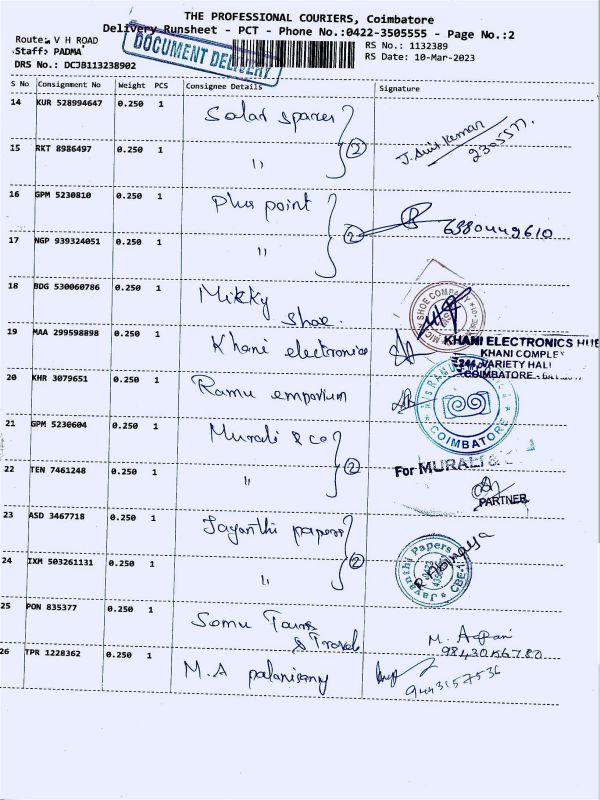 THE PROFESSIONAL COURIERS, Coimbatore
Delivery Runsheet - PCT - Phone No.:0422-3505555 - Page No.:2
Route: V H ROAD
RS No.: 1132389
Staff: PADMA
RS Date: 10-Mar-2023
DRS No.: DCJB113238902
DOCUMENT DELIVERY
S No Consignment No Weight PCS Consignee Details Signature
14 KUR 528994647 0.250 1 Solar spares
2
15 RKT 8986497 0.250 1 "
2305577.
16 GPM 5230810 0.250 1 Plus point
2 6380449610
17 NGP 939324051 0.250 1 "
18 BDG 530060786 0.250 1 Mikky
Shoe.
SHOE COMPANY
19 MAA 299598898 0.250 1 Khani electronics
KHANI ELECTRONICS HUB
KHANI COMPLEX
244, VARIETY HALL
COIMBATORE -
20 KHR 3079651 0.250 1 Ramu emporium
COIMBATORE
21 GPM 5230604 0.250 1 Murali & co
2
For MURALI &
22 TEN 7461248 0.250 1 "
PARTNER
23 ASD 3467718 0.250 1 Jayanthi papers
2
Jayanthi Papers
CBE-1
R. Abinaya
24 IXM 503261131 0.250 1 "
25 PON 835377 0.250 1 Somu Tours
& Travels
26 TPR 1228362 0.250 1 M.A palanisamy
9443157536